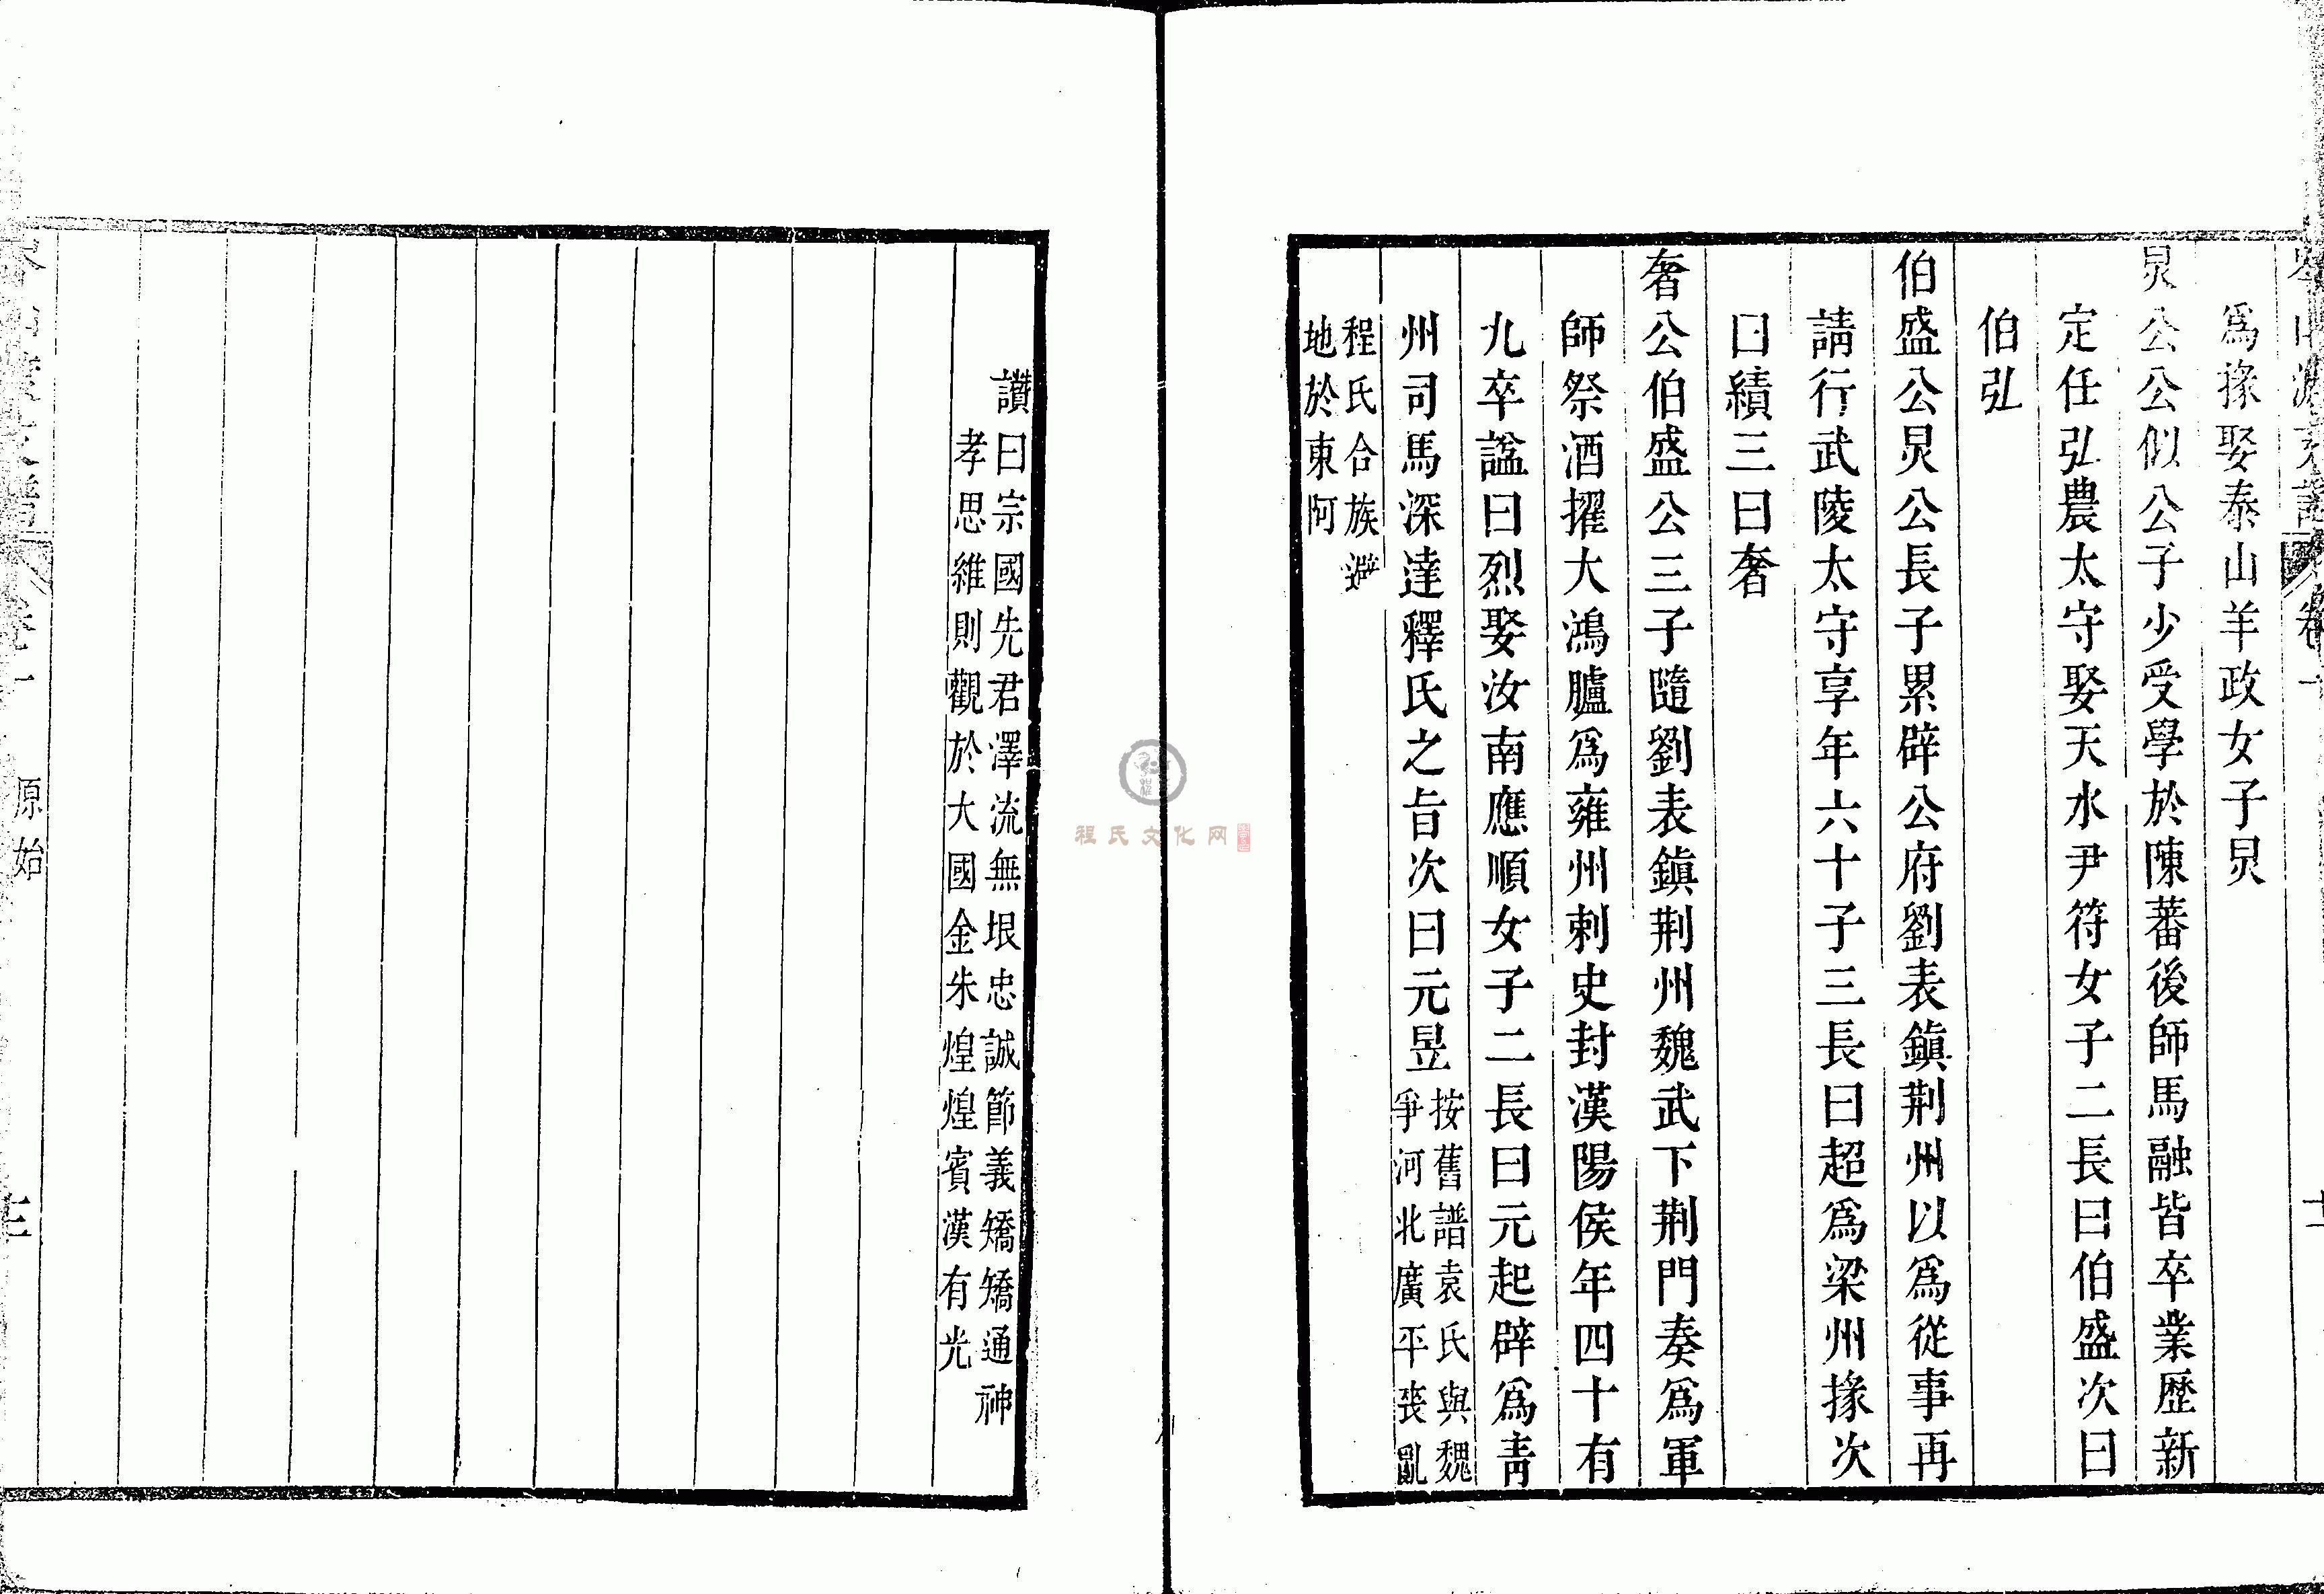 爲掾娶泰山羊政女子炅
炅公公似公子少受學於陳蕃後師馬融皆卒業歷新
定任弘農太守娶天水尹符女子二長曰伯盛次曰
伯弘
伯盛公炅公長子累辟公府劉表鎭荆州以爲從事再
請行武陵太守享年六十子三長曰超爲梁州掾次
曰績三曰奢
奢公伯盛公三子隨劉表鎭荆州魏武下荆門奏爲軍
師祭酒擢大鴻臚爲雍州刺史封漢陽侯年四十有
九卒諡曰烈娶汝南應順女子二長曰元起辟爲靑
州司馬深達釋氏之旨次曰元昱
按舊譜袁氏與魏
爭河北廣平喪亂
程氏合族避
地於東阿
讚曰宗國先君澤流無垠忠誠節義矯矯通神
孝思維則觀於大國金朱煌煌賓漢有光
卷一
原始
三
程氏文化网